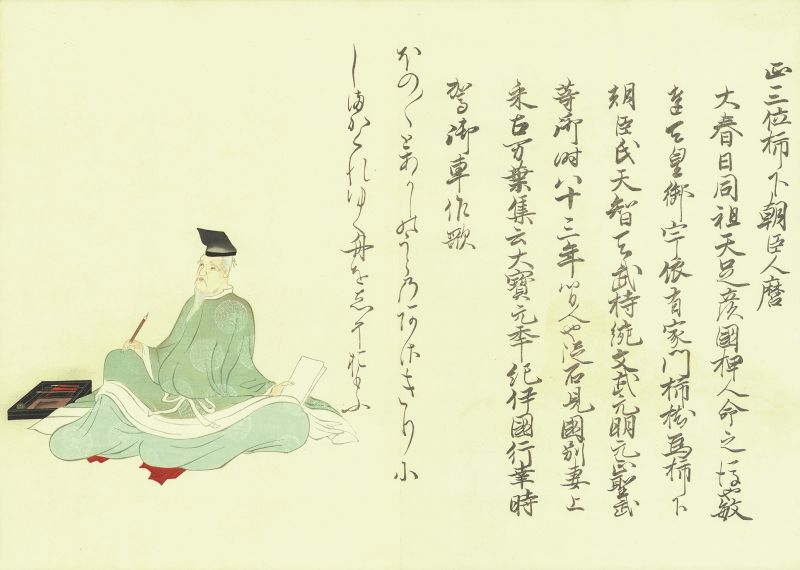 正三位柿下朝臣人麿
大春日同祖天足彦國押人命之後也敏
達天皇御宇依有家門柿樹為柿下
朝臣氏天智天武持統文武元明元正聖武
等御時八十三年間人也従石見國別妻上
来古万葉集云大寶元年紀伊國行幸時
駕御車作歌
ほの〱とあかしのうらのあさきりに
しまかくれゆく舟を志そおもふ